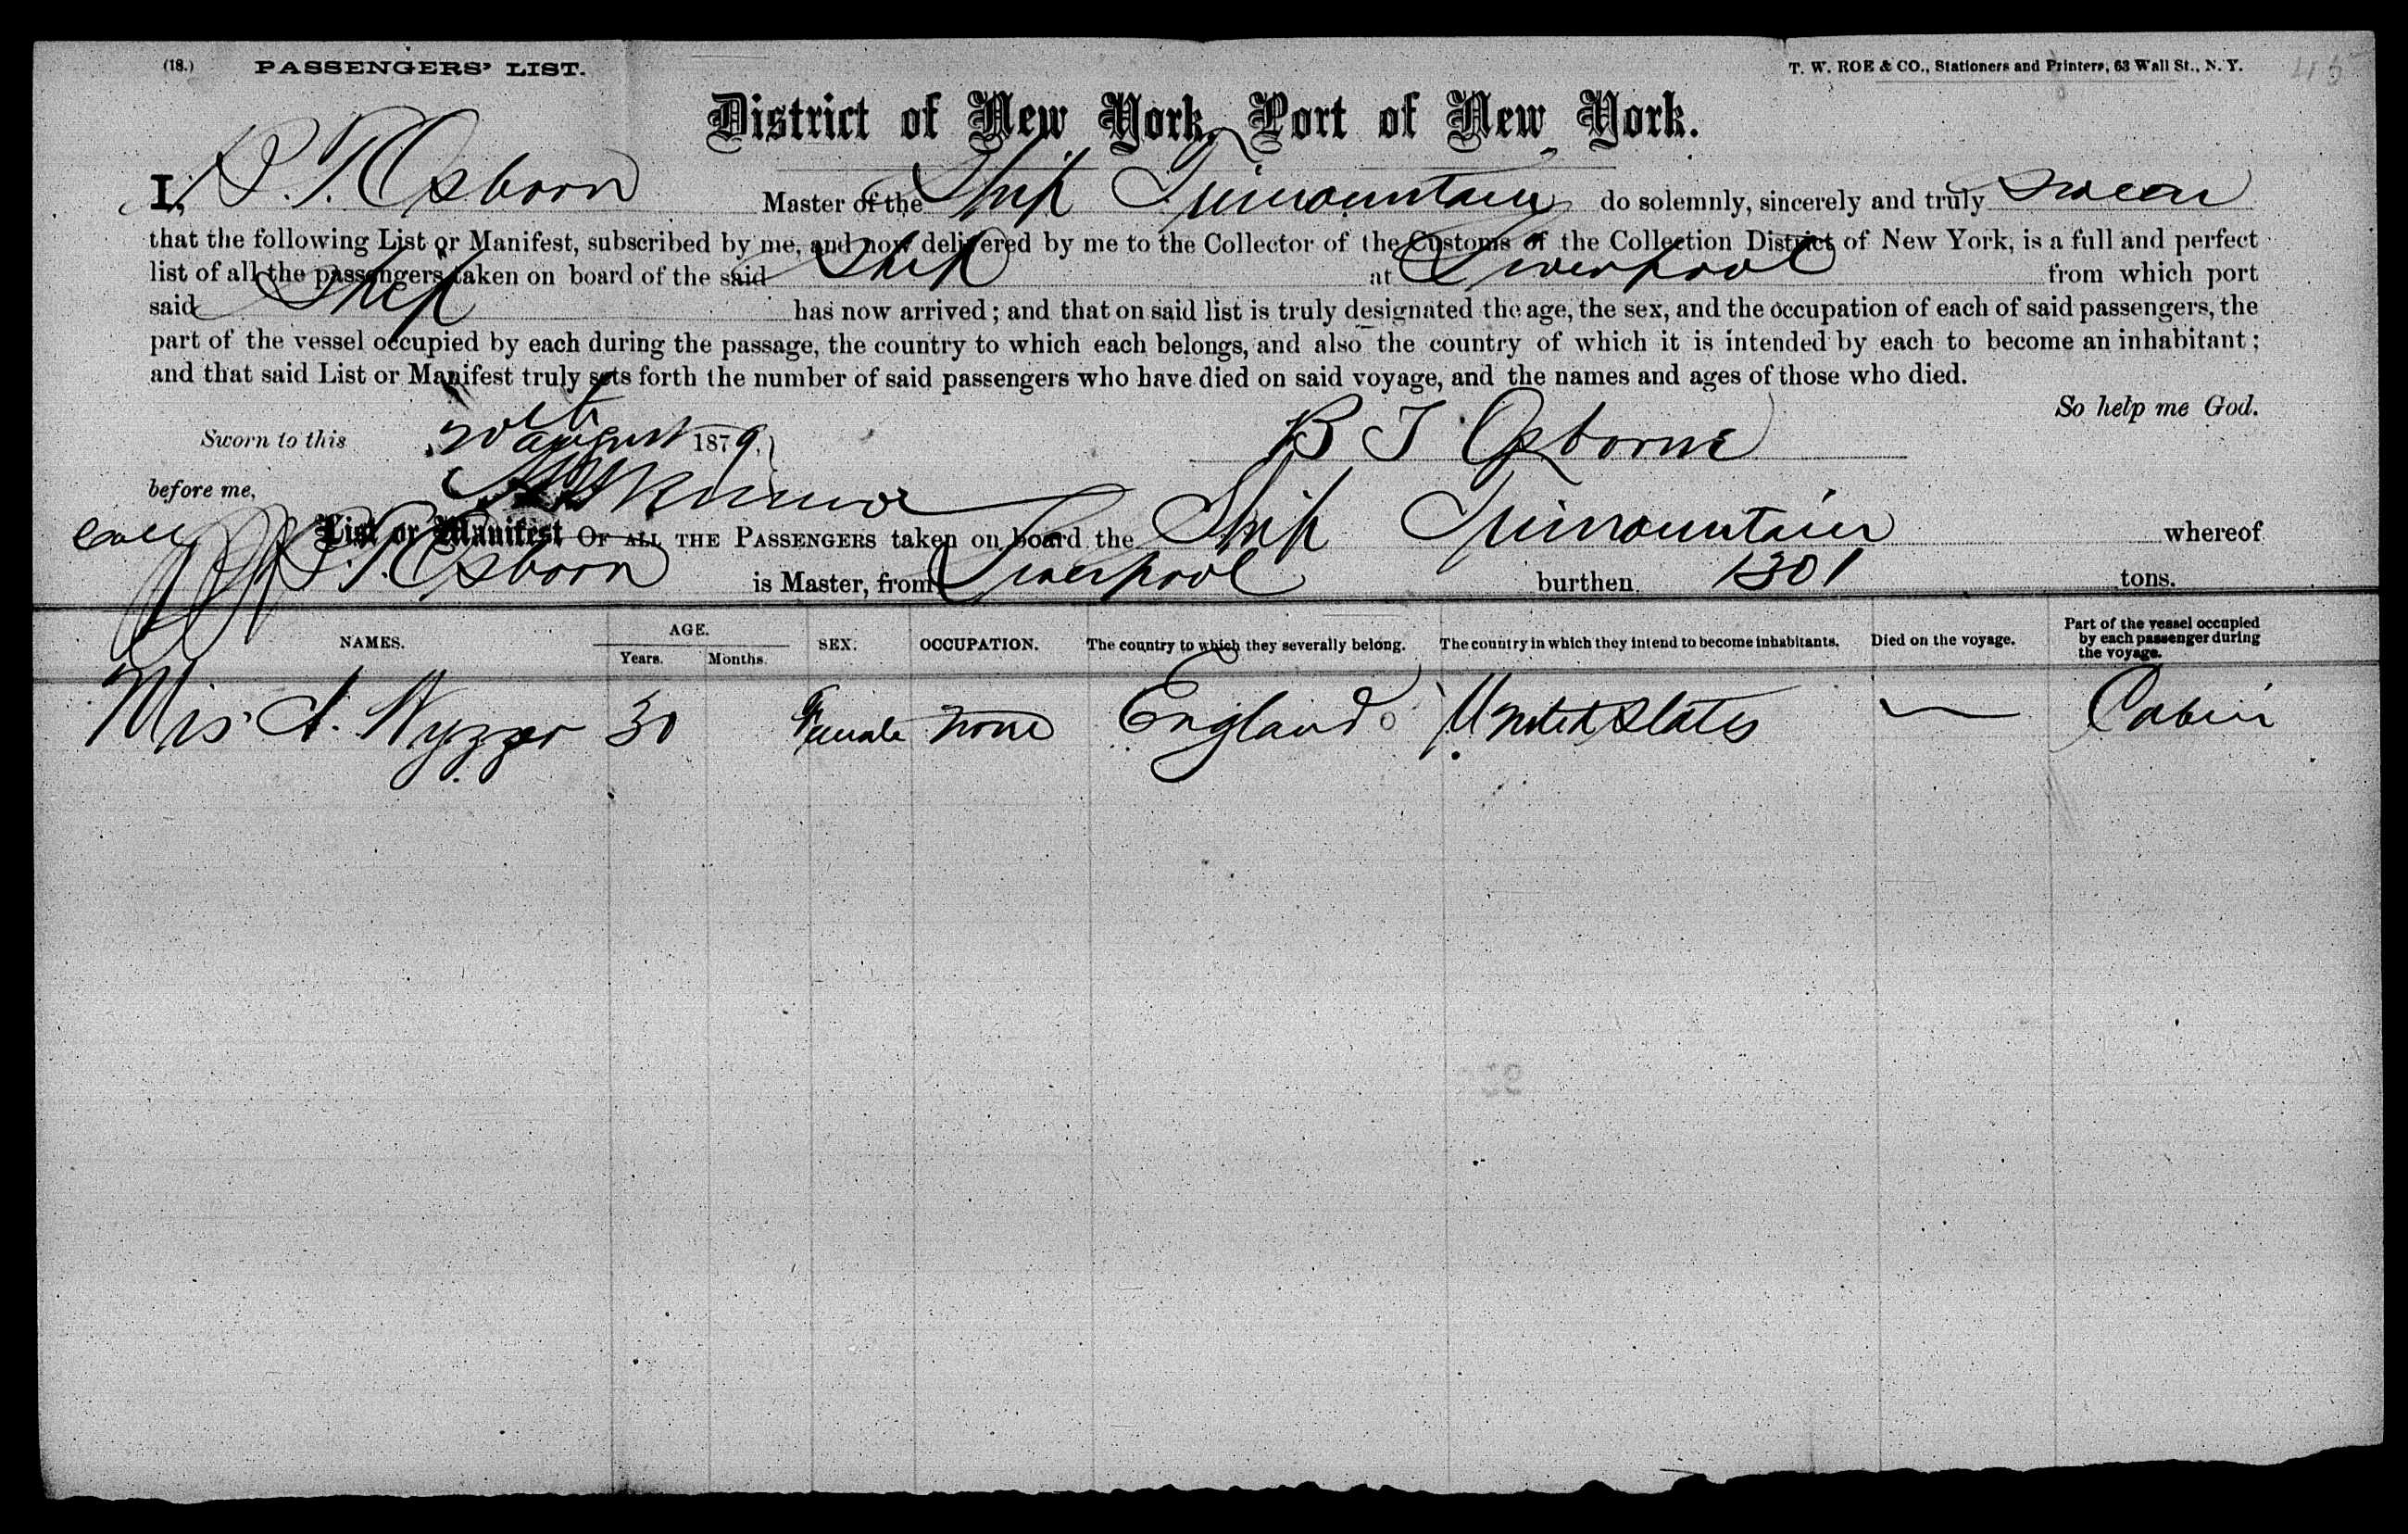 (18.) PASSENGERS' LIST. T. W. ROE & CO., Stationers and Printers, 63 Wall St., N. Y. 45
District of New York, Port of New York.
I, P. T. Osborn Master of the Ship Trimountain do solemnly, sincerely and truly swear
that the following List or Manifest, subscribed by me, and now delivered by me to the Collector of the Customs of the Collection District of New York, is a full and perfect
list of all the passengers taken on board of the said Ship at Liverpool from which port
said Ship has now arrived; and that on said list is truly designated the age, the sex, and the occupation of each of said passengers, the
part of the vessel occupied by each during the passage, the country to which each belongs, and also the country of which it is intended by each to become an inhabitant;
and that said List or Manifest truly sets forth the number of said passengers who have died on said voyage, and the names and ages of those who died.
So help me God.
Sworn to this 20th August 1879, B T Osborne
before me,
List or Manifest OF ALL THE PASSENGERS taken on board the Ship Trimountain whereof
P. T. Osborn is Master, from Liverpool burthen 1301 tons.
NAMES. AGE. Years. Months. SEX. OCCUPATION. The country to which they severally belong. The country in which they intend to become inhabitants. Died on the voyage. Part of the vessel occupied by each passenger during the voyage.
Mrs A. Wyzzer 30 Female None England United States — Cabin